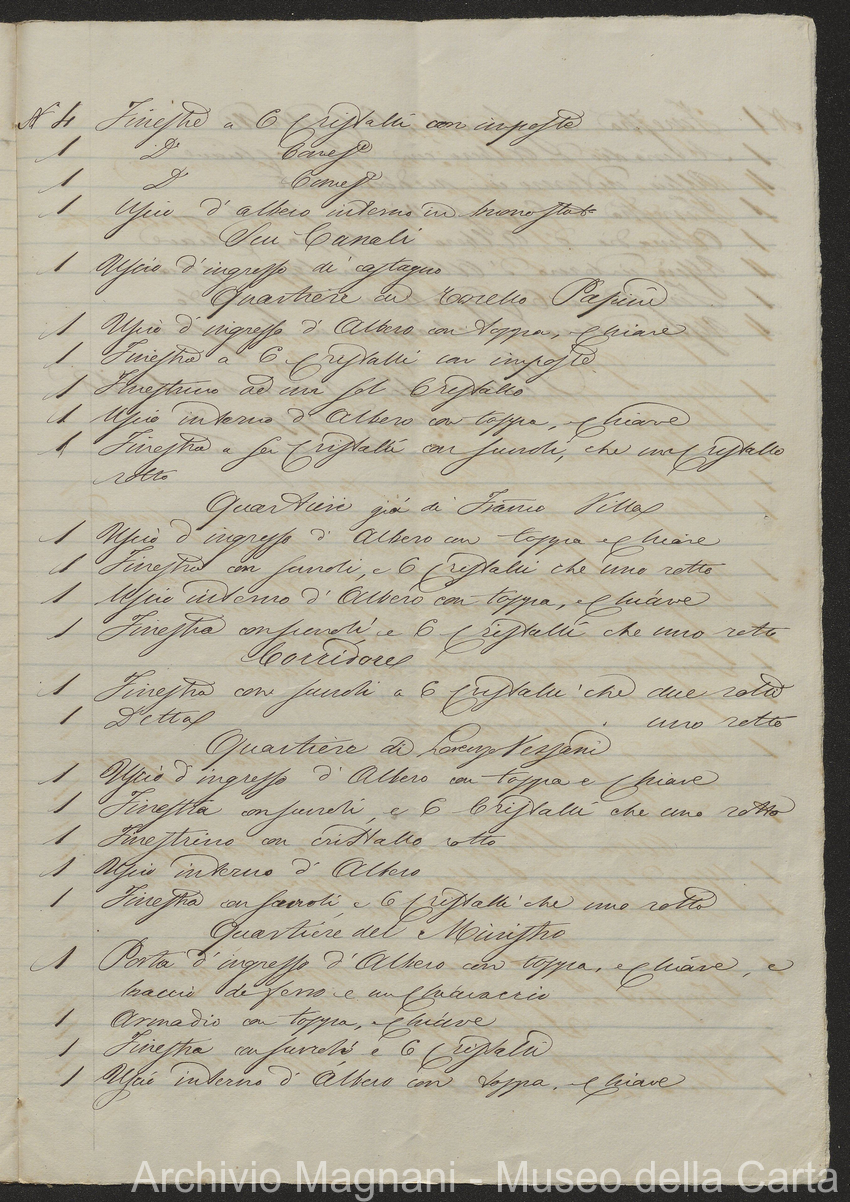 N 4 Finestre a 6 Cristalli con imposte
1 D.
1 D.
1 Uscio d'albero interno in buono stato
Sei Canali
1 Uscio d'ingresso di castagno
Quartiere di Torello Papini
1 Uscio d'ingresso d'Albero con toppa, e Chiave
1 Finestra a 6 Cristalli con imposte
1 Finestrino ad un sol Cristallo
1 Uscio interno d'Albero con toppa, e Chiave
1 Finestra a sei Cristalli con scuroli, che un Cristallo
rotto
Quartiere già di Franco Villa
1 Uscio d'ingresso d'Albero con toppa e Chiave
1 Finestra con scuroli, e 6 Cristalli che uno rotto
1 Uscio interno d'Albero con toppa, e Chiave
1 Finestra con scuroli, e 6 Cristalli che uno rotto
Corridore
1 Finestra con scuroli a 6 Cristalli che due rotti
1 Detta uno rotto
Quartiere di Lorenzo Vezzani
1 Uscio d'ingresso d'Albero con toppa e Chiave
1 Finestra con scuroli, e 6 Cristalli che uno rotto
1 Finestrino con cristallo rotto
1 Uscio interno d'Albero
1 Finestra con scuroli, e 6 Cristalli che uno rotto
Quartiere del Ministro
1 Porta d'ingresso d'Albero con toppa, e Chiave, e
braccio di ferro e un Chiavaccio
1 Armadio con toppa, e Chiave
1 Finestra con scuroli e 6 Cristalli
1 Uscio interno d'Albero con toppa, e Chiave
Archivio Magnani - Museo della Carta